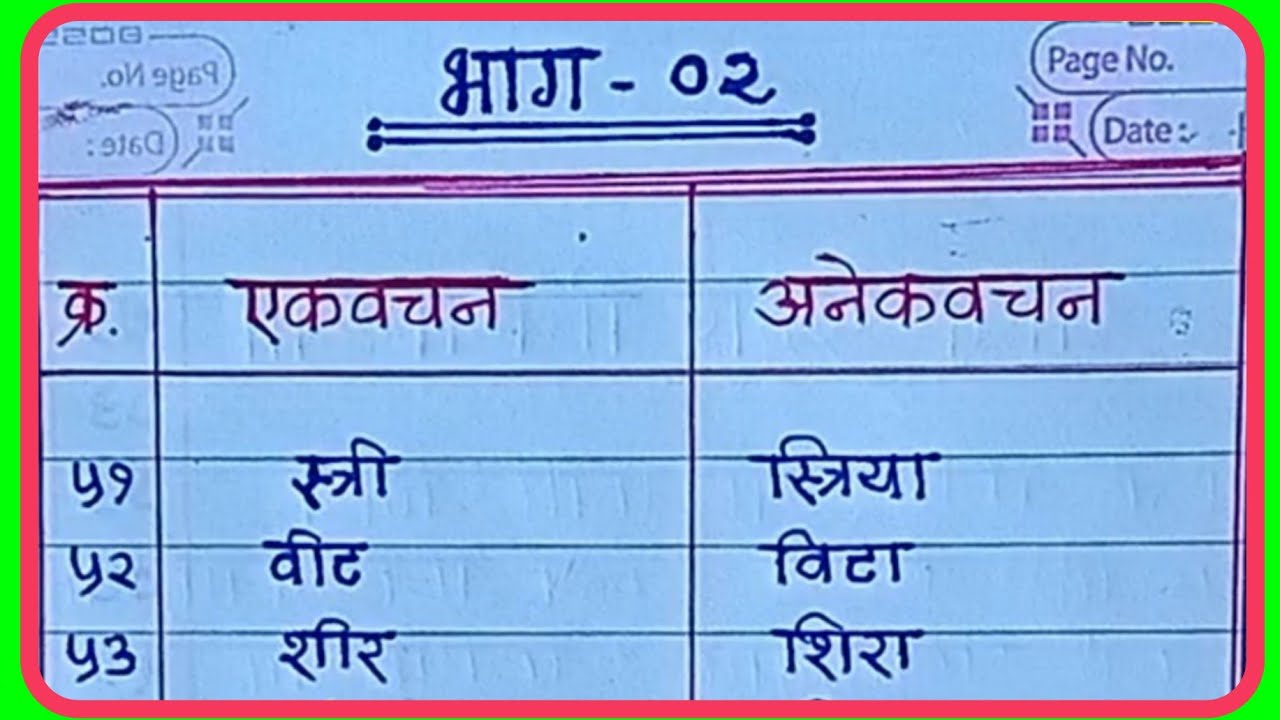 भाग - ०२
Page No.
Date:
Page No.
Date:
क्र. एकवचन अनेकवचन
५१ स्त्री स्त्रिया
५२ वीट विटा
५३ शीर शिरा